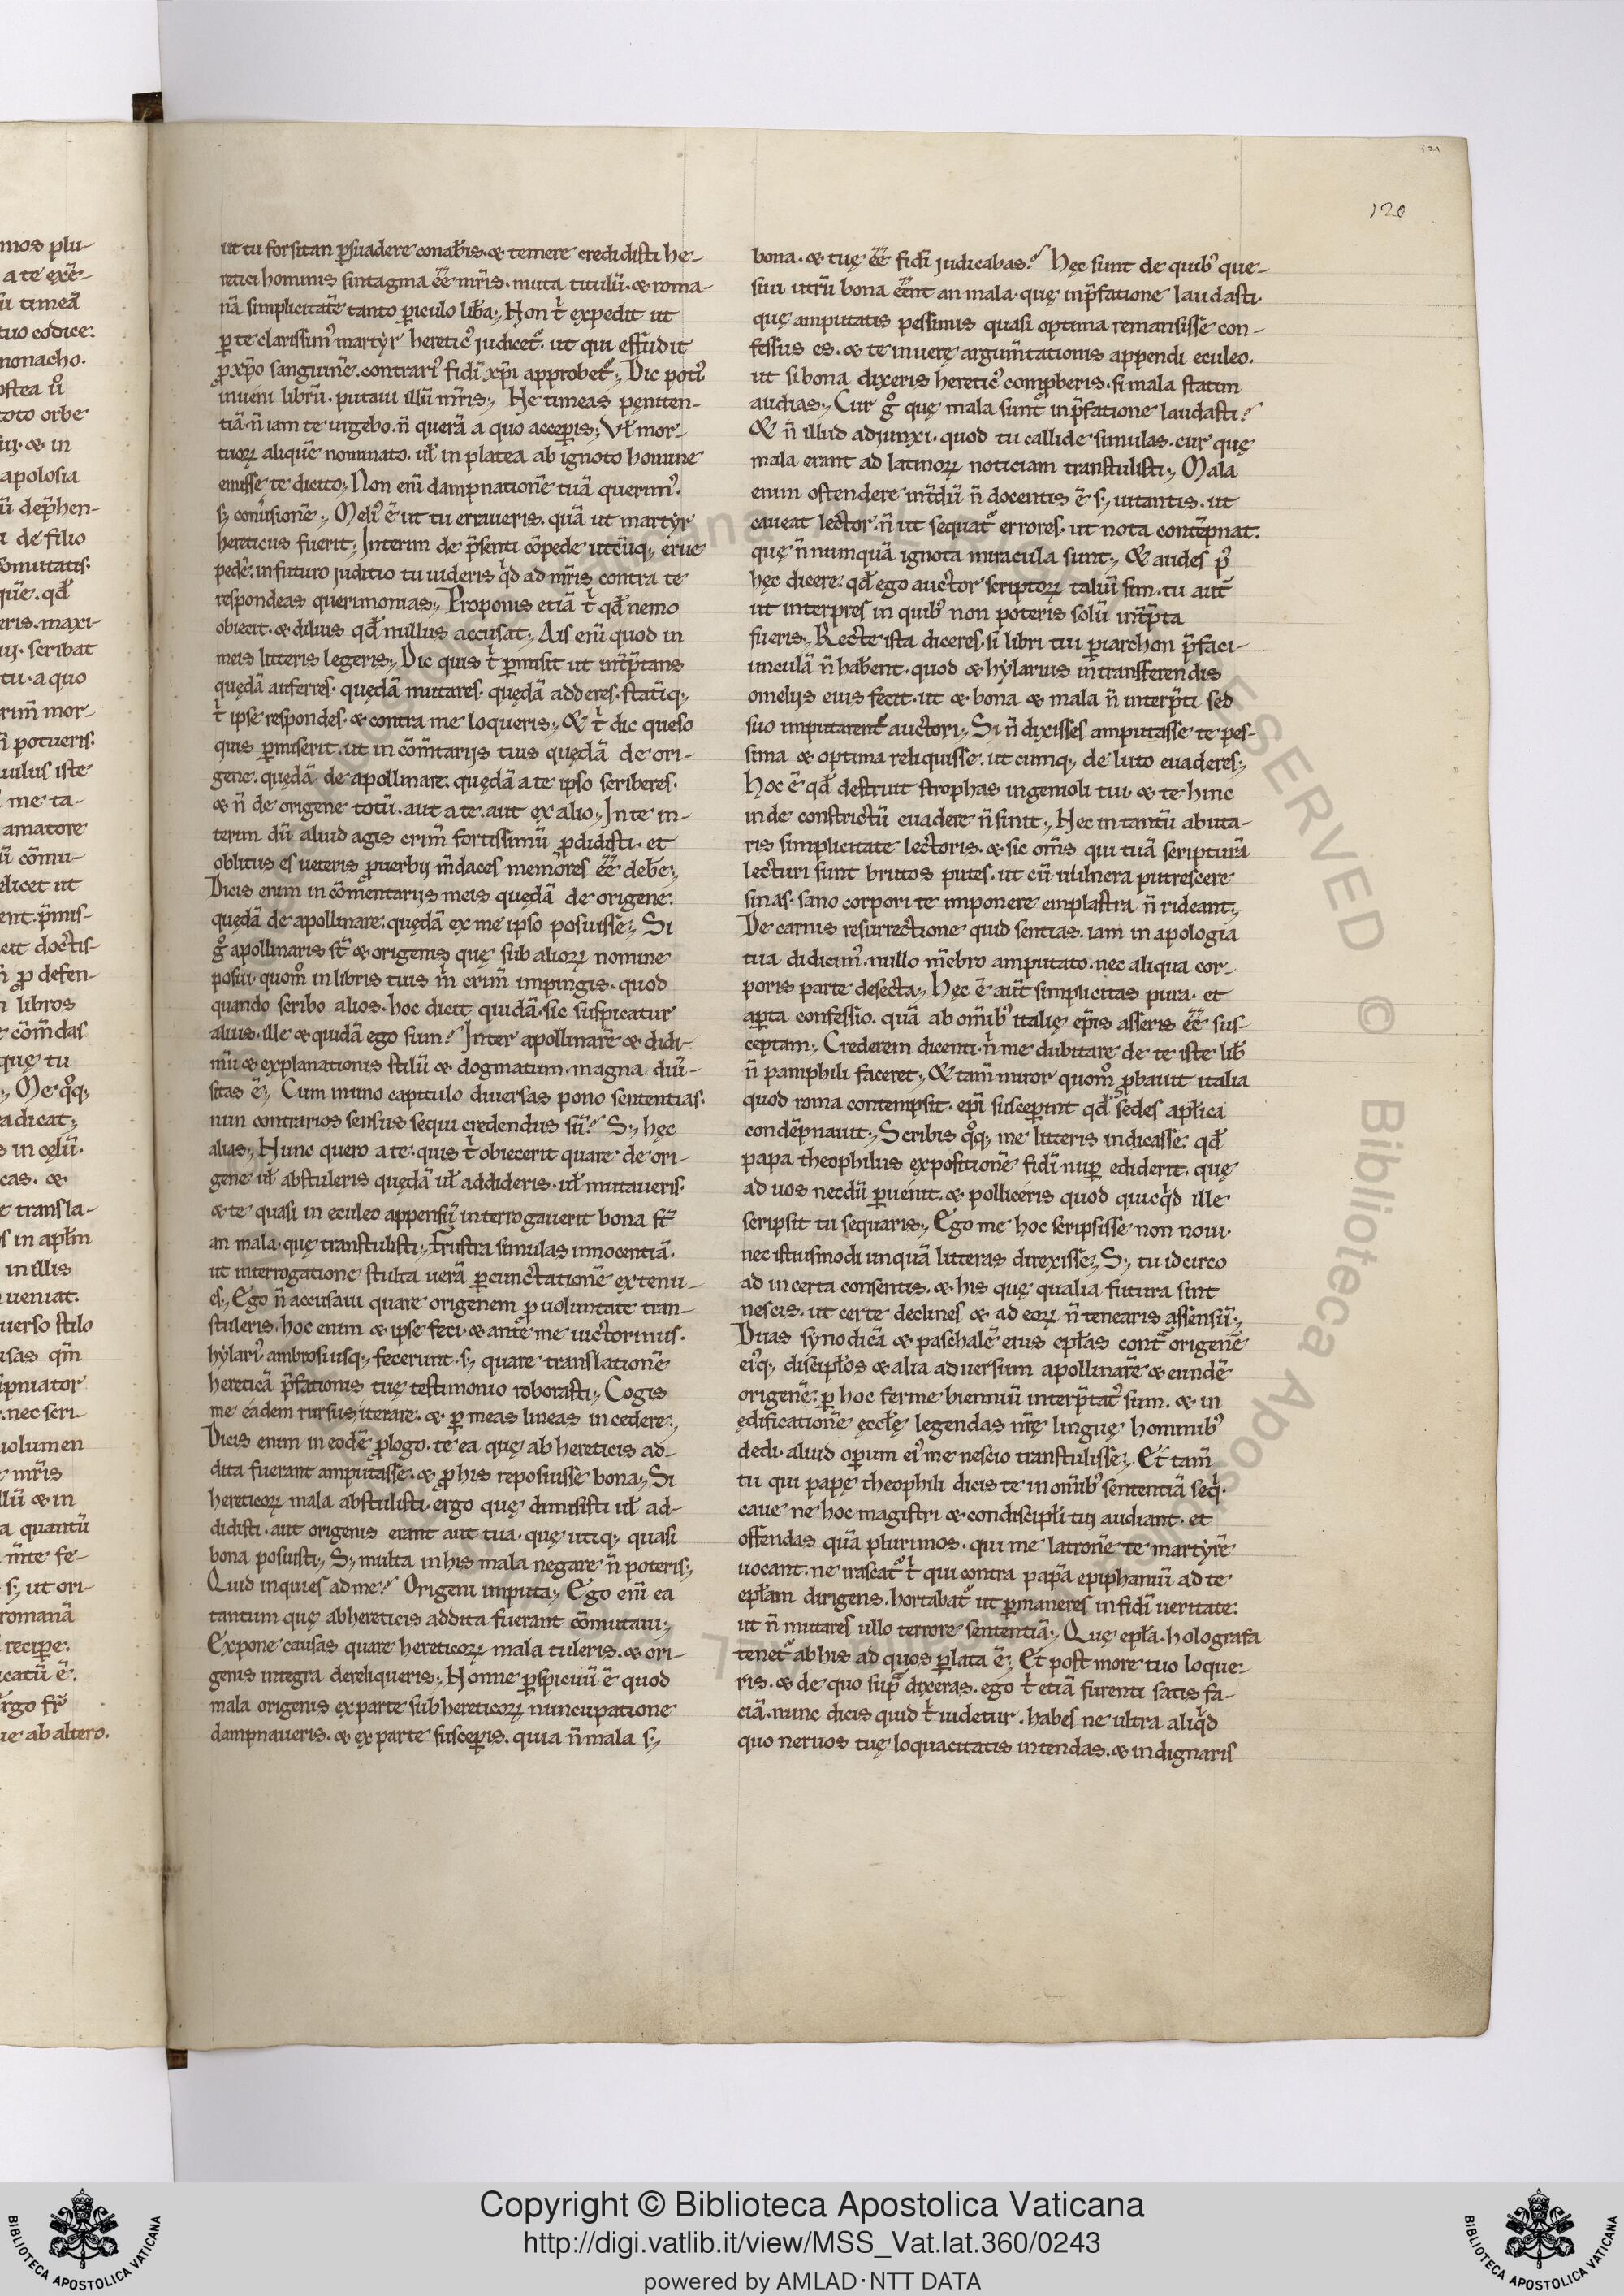 ut tu forsitan ꝑsuadere conaƀis. & temere credidisti he-
retici hominis sintagma ēē mr̄is. muta titulū. & roma-
nā simplicitatē tanto ꝑiculo liƀa. Non t̍ expedit ut
ꝑ te clarissim᾽ martyr heretic᾽ judicet᷑. ut qui effudit
ꝓ xp̄o sanguinē. contrari᾽ fidī xp̄i approbet᷑. Dic poti᾽
inueni librū. putaui illū mr̄is. Ne timeas pęniten-
tiā. n̄ iam te urgebo. n̄ querā a quo acceꝑis. Vł mor-
tuoꝝ aliquē nominato. uł in platea ab ignoto homine
emisse te dicito. Non eni̅ dampnationē tuā querim᾽.
s; conū̍sionē. Meli᾽ ē ut tu erraueris. quā ut martyr
hereticus fuerit. Interim de p̄senti cōpede utcūq; erue
pedē. in futuro juditio tu uideris q̍d ad mr̄is contra te
respondeas querimonias. Proponis etiā t̍ qđ nemo
obiecit. & diluis qđ nullus accusat. Ais eni̅ quod in
meis litteris legeris. Dic quis t̍ ꝑmisit ut int̄p̄tans
quędā auferres. quędā mutares. quędā adderes. statīq;
t̍ ipse respondes. & contra me loqueris. & t̍ dic queso
quis ꝑmiserit. ut in cōm̄tarijs tuis quędā de ori-
gene. quędā de apollinare. quędā a te ipso scriberes.
& n̄ de origene totū. aut a te. aut ex alio. Inte in-
terim dū aliud agis crim̄ fortissimū ꝓdidisti. et
oblitus es ueteris ꝓuerbij m̄daces memores ēē deƀe.
Dicis enim in cōmentarijs meis quędā de origene.
quędā de apollinare. quędā ex me ipso posuisse. Si
gͦ apollinaris st̄ & origenis quę sub alioꝝ nomine
posui. quom̊ in libris tuis m̍ crim̄ impingis. quod
quando scribo alios. hoc dicit quidā. sic suspicatur
alius. ille & quidā ego sum? Inter apollinarē & didi-
mū & explanationis stilū & dogmatum. magna diu̍-
sitas ē. Cum in uno capitulo diuersas pono sententias.
nun contrarios sensus sequi credendus sū? S; hęc
alias. Nunc quero a te. quis t̍ obiecerit quare de ori-
gene uł abstuleris quędā uł addideris. uł mutaueris.
& te quasi in eculeo appensū interrogauerit bona st̄
an mala. quę transtulisti. Frustra simulas innocentiā.
ut interrogatione stulta uerā ꝑcunctationē extenu-
es. Ego n̄ accusaui quare origenem ꝓ uoluntate tran-
stuleris. hoc enim & ipse feci. & ante me uictorinus.
hylari᾽ ambrosiusq; fecerunt. s; quare translationē
hereticā p̄fationis tuę testimonio roborasti. Cogis
me eadem rursus iterare. & ꝑ meas lineas incedere.
Dicis enim in eodē ꝓlogo. te ea quę ab hereticis ad-
dita fuerant amputasse. & ꝓ his reposuisse bona. Si
hereticoꝝ mala abstulisti. ergo quę dimisisti uł ad-
didisti. aut origenis erant aut tua. quę utiq; quasi
bona posuisti. S; multa in his mala negare n̄ poteris.
Quid inquies ad me? Origeni imputa. Ego eni̅ ea
tantum quę ab hereticis addita fuerant cōmutaui.
Expone causas quare hereticoꝝ mala tuleris. & ori-
genis integra dereliqueris. Nonne ꝑspicuū ē quod
mala origenis ex parte sub hereticoꝝ nuncupatione
dampnaueris. & ex parte susceꝑis. quia n̄ mala s;
bona. & tuę ēē fidī judicabas? Hęc sunt de quib᾽ que-
siui utrū bona ēēnt an mala. quę in p̄fatione laudasti.
quę amputatis pessimis quasi optima remansisse con-
fessus es. & te in uerę argum̄tationis appendi eculeo.
ut si bona dixeris heretic᾽ comꝓberis. si mala statim
audias. Cur gͦ quę mala sunt in p̄fatione laudasti?
& n̄ illud adjunxi. quod tu callide simulas. cur quę
mala erant ad latinoꝝ noticiam transtulisti. Mala
enim ostendere int̄dū n̄ docentis ē s; uitantis. ut
caueat lector. n̄ ut sequat᷑ errores. ut nota contēpnat.
quę n̄nunquā ignota miracula sunt. & audes p᾽
hęc dicere. qđ ego auctor scriptoꝝ taliū sim. tu aut̄
ut interpres in quib᾽ non poteris solū int̄p̄ta
fueris. Recte ista diceres. si libri tui ꝑiarchon p̄faci-
unculā n̄ haƀent. quod & hylarius in transferendis
omelijs eius fecit. ut & bona & mala n̄ interp̄ti sed
suo imputarent᷑ auctori. Si n̄ dixisses amputasse te pes-
sima & optima reliquisse. ut cumq; de luto euaderes.
Hoc ē qđ destruit strophas ingenioli tui. & te hinc
inde constrictū euadere n̄ sinit. Nec in tantū abuta-
ris simplicitate lectoris. & sic om̄s qui tuā scripturā
lecturi sunt brutos putes. ut cū uulnera putrescere
sinas. sano corpori te imponere emplastra n̄ rideant.
De carnis resurrectione quid sentias. iam in apologia
tua didicim᾽. nullo m̄ebro amputato. nec aliqua cor-
poris parte desecta. Hęc ē aut̄ simplicitas pura. et
aꝑta confessio. quā ab om̄ib᾽ italię ep̄is asseris ēē sus-
ceptam. Crederem dicenti. n̍ me dubitare de te iste liƀ
n̄ pamphili faceret. & tam̄ miror quom̊ ꝓbauit italia
quod roma contempsit. ep̄i susceꝑint qđ sedes apłica
condēpnauit. Scribis q̊q; me litteris indicasse. qđ
papa theophilus expositionē fidī nuꝑ ediderit. quę
ad uos necdū ꝑuenit. & polliceris quod quicq̍d ille
scripsit tu sequaris. Ego me hoc scripsisse non noui.
nec istiusmodi unquā litteras direxisse. S; tu idcirco
ad incerta consentis. & his quę qualia futura sint
nescis. ut certe declines & ad eoꝝ n̄ tenearis assensū.
Duas synodicā & paschalē eius epłas contͣ origenē
ei᾽q; discipłos & alia aduersum apollinarē & eundē
origenē. ꝑ hoc ferme bienniū interp̄tat᾽ sum. & in
ędificationē ęccłę legendas nr̄ę linguę hominib᾽
dedi. aliud oꝑum ei᾽ me nescio transtulisse. Et tam̄
tu qui papę theophili dicis te in om̄ib᾽ sententiā seq̍.
caue ne hoc magistri & condiscipłi tui audiant. et
offendas quā plurimos. qui me latronē te martyrē
uocant. ne irascat᷑ t̍ qui contra papā epiphaniū ad te
epłam dirigens. hortabat᷑ ut ꝑmaneres in fidī ueritate.
ut n̄ mutares ullo terrore sententiā. Quę epła. holografa
tenet᷑ ab his ad quos ꝑlata ē. Et post more tuo loque-
ris. & de quo supͣ dixeras. ego t̍ etiā furenti satis fa-
ciā. nunc dicis quid t̍ uidetur. habes ne ultra aliq̍d
quo neruos tuę loquacitatis intendas. & indignaris
120
121
mos plu-
a te exē-
timeā
tuo codice.
monacho.
toto orbe
& in
apolosia
dep̄hen-
de filio
cōmutatis.
qđ
eris. maxi-
scribat
tu. a quo
mor-
n̄ potueris.
iste
me ta-
amatore
cōmu-
elicet ut
p̄mis-
doctis-
ꝓ defen-
libros
cōm̄das
quę tu
Me q̊q;
adicat.
in cęlū.
&
transla-
in apłm
in illis
ueniat.
uerso stilo
qm̄
ipniator
nec scri-
uolumen
mr̄is
& in
quantū
fe-
s; ut ori-
romanā
reciꝑe.
ē.
ergo
ab altero.
RESERVED © Biblioteca Apostolica Vaticana
Copyright © Biblioteca Apostolica Vaticana
http://digi.vatlib.it/view/MSS_Vat.lat.360/0243
powered by AMLAD·NTT DATA
BIBLIOTECA APOSTOLICA VATICANA
BIBLIOTECA APOSTOLICA VATICANA